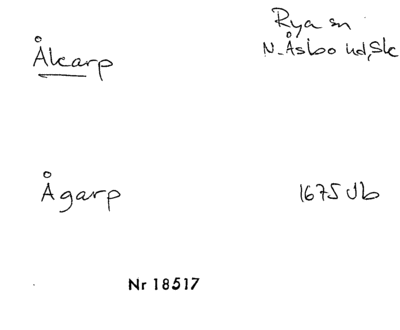 Rya sn
Ålcarp N. Åsbo hd, Sk
Ågarp 1675 Jb
Nr 18517